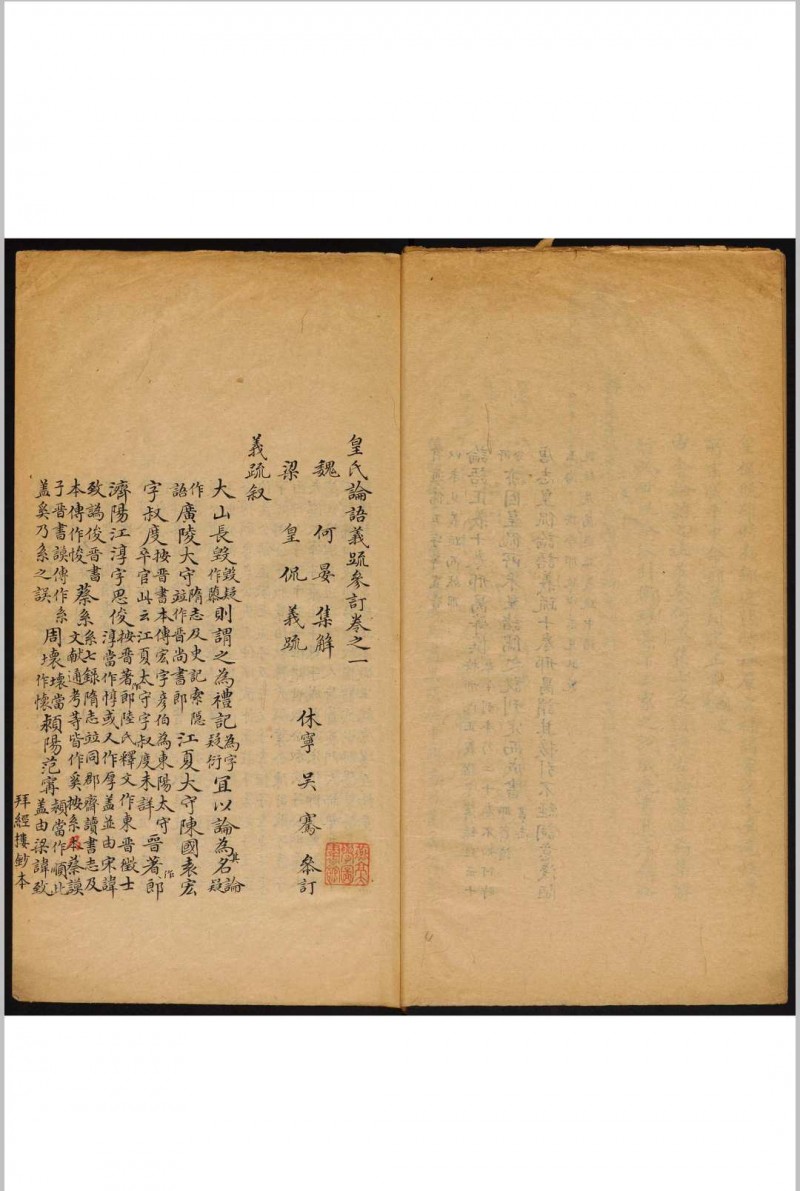 皇氏論語義疏參訂卷之一
魏 何晏 集解
休寧 吳騫 參訂
梁 皇侃 義疏
義疏叙
大山長毀毀疑作慕則謂之為禮記為字疑衍宜以論為其名論疑
作語廣陵大守隋志及史記索隱竝作晉尚書郎江夏大守陳國袁宏
字叔度按晉書本傳宏字彥伯為東陽太守卒官此云江夏太守字叔度未詳晉著作郎
濟陽江淳字思俊按晉著郎陸氏釋文作東晉徵士淳當作惇或又作厚蓋並由宋諱
致譌俊晉書本傳作悛蔡系系七錄隋志竝同郡齋讀書志及文獻通考等皆作奚按系蔡謨
子晉書謨傳作系蓋奚乃系之誤周壞壞當作懷潁陽范甯潁當作順此蓋由梁諱致
拜經樓鈔本